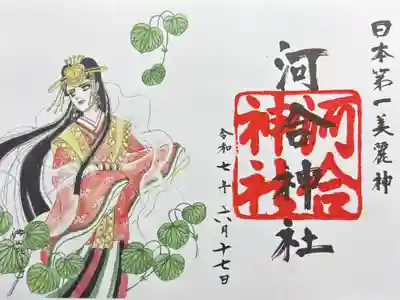 日本第一美麗神
河合神社
河合神社
令和七年六月十七日